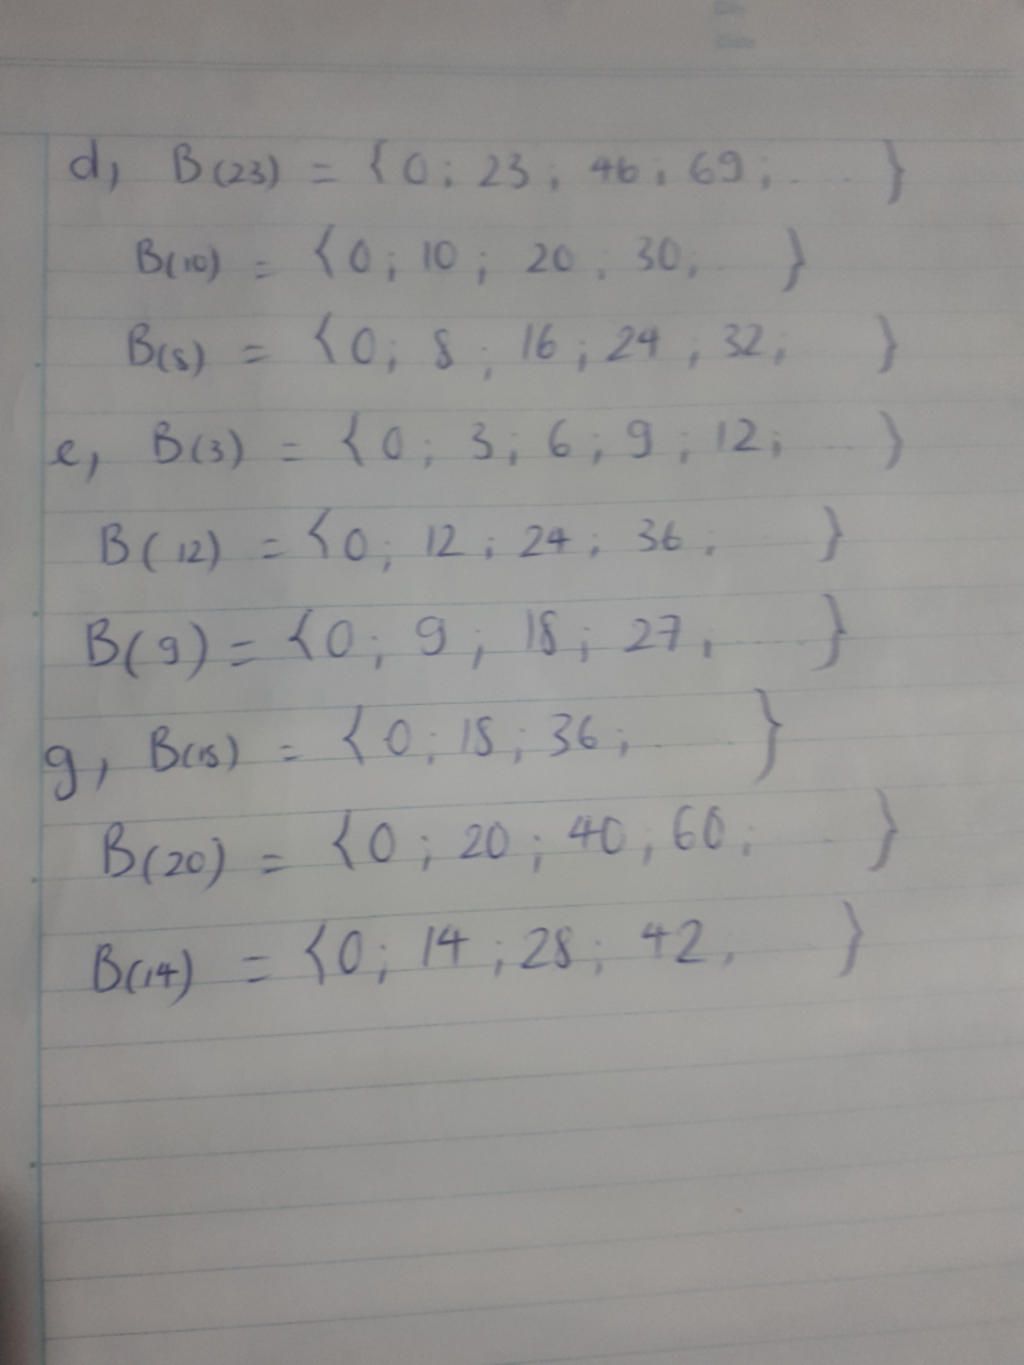 d, B(23) = {0; 23; 46; 69; ... }
B(10) = {0; 10; 20; 30; ... }
B(8) = {0; 8; 16; 24; 32; }
e, B(3) = {0; 3; 6; 9; 12; ... }
B(12) = {0; 12; 24; 36; }
B(9) = {0; 9; 18; 27; ... }
g, B(18) = {0; 18; 36; ... }
B(20) = {0; 20; 40; 60; ... }
B(14) = {0; 14; 28; 42; }